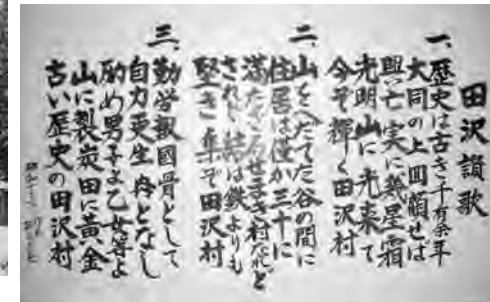 田沢讃歌
一、歴史は古き千有余年
大同の上回顧せば
興亡実に幾星霜
光明山に光来て
今ぞ輝く田沢村
二、山をへだてた谷の間に
住居は僅か三十に
満たざるせまき村なれど
されど結は鉄よりも
堅き集ぞ田沢村
三、勤労報國骨として
自力更生舟となし
励め男子よ乙女等よ
山に製炭田に黄金
古い歴史の田沢村